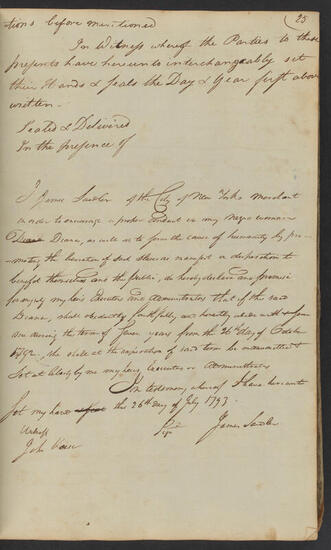 25
tions before mentioned
In Witness whereof the Parties to these
presents have hereunto interchangeably set
their Hands & Seals the Day & Year first above
written.
Sealed & Delivered
In the presence of
I James of the City of New York Merchant
in order to encourage a proper conduct in my negro woman
Diana, as well as to the cause of humanity by pro-
moting the of such slaves as manifest a disposition to
benefit themselves and the public, do hereby declare and promise
for my heirs Executors and Administrators that if the said
Diana, shall obediently faithfully and honestly
me during the term of years from the 26th day of October
1792, she shall at the expiration of said term be manumitted
& set at liberty by me my heirs, Executors or Administrators
In testimony whereof I have hereunto
Set my hand this 26th day of July 1793.
Witness Sign'd James
John